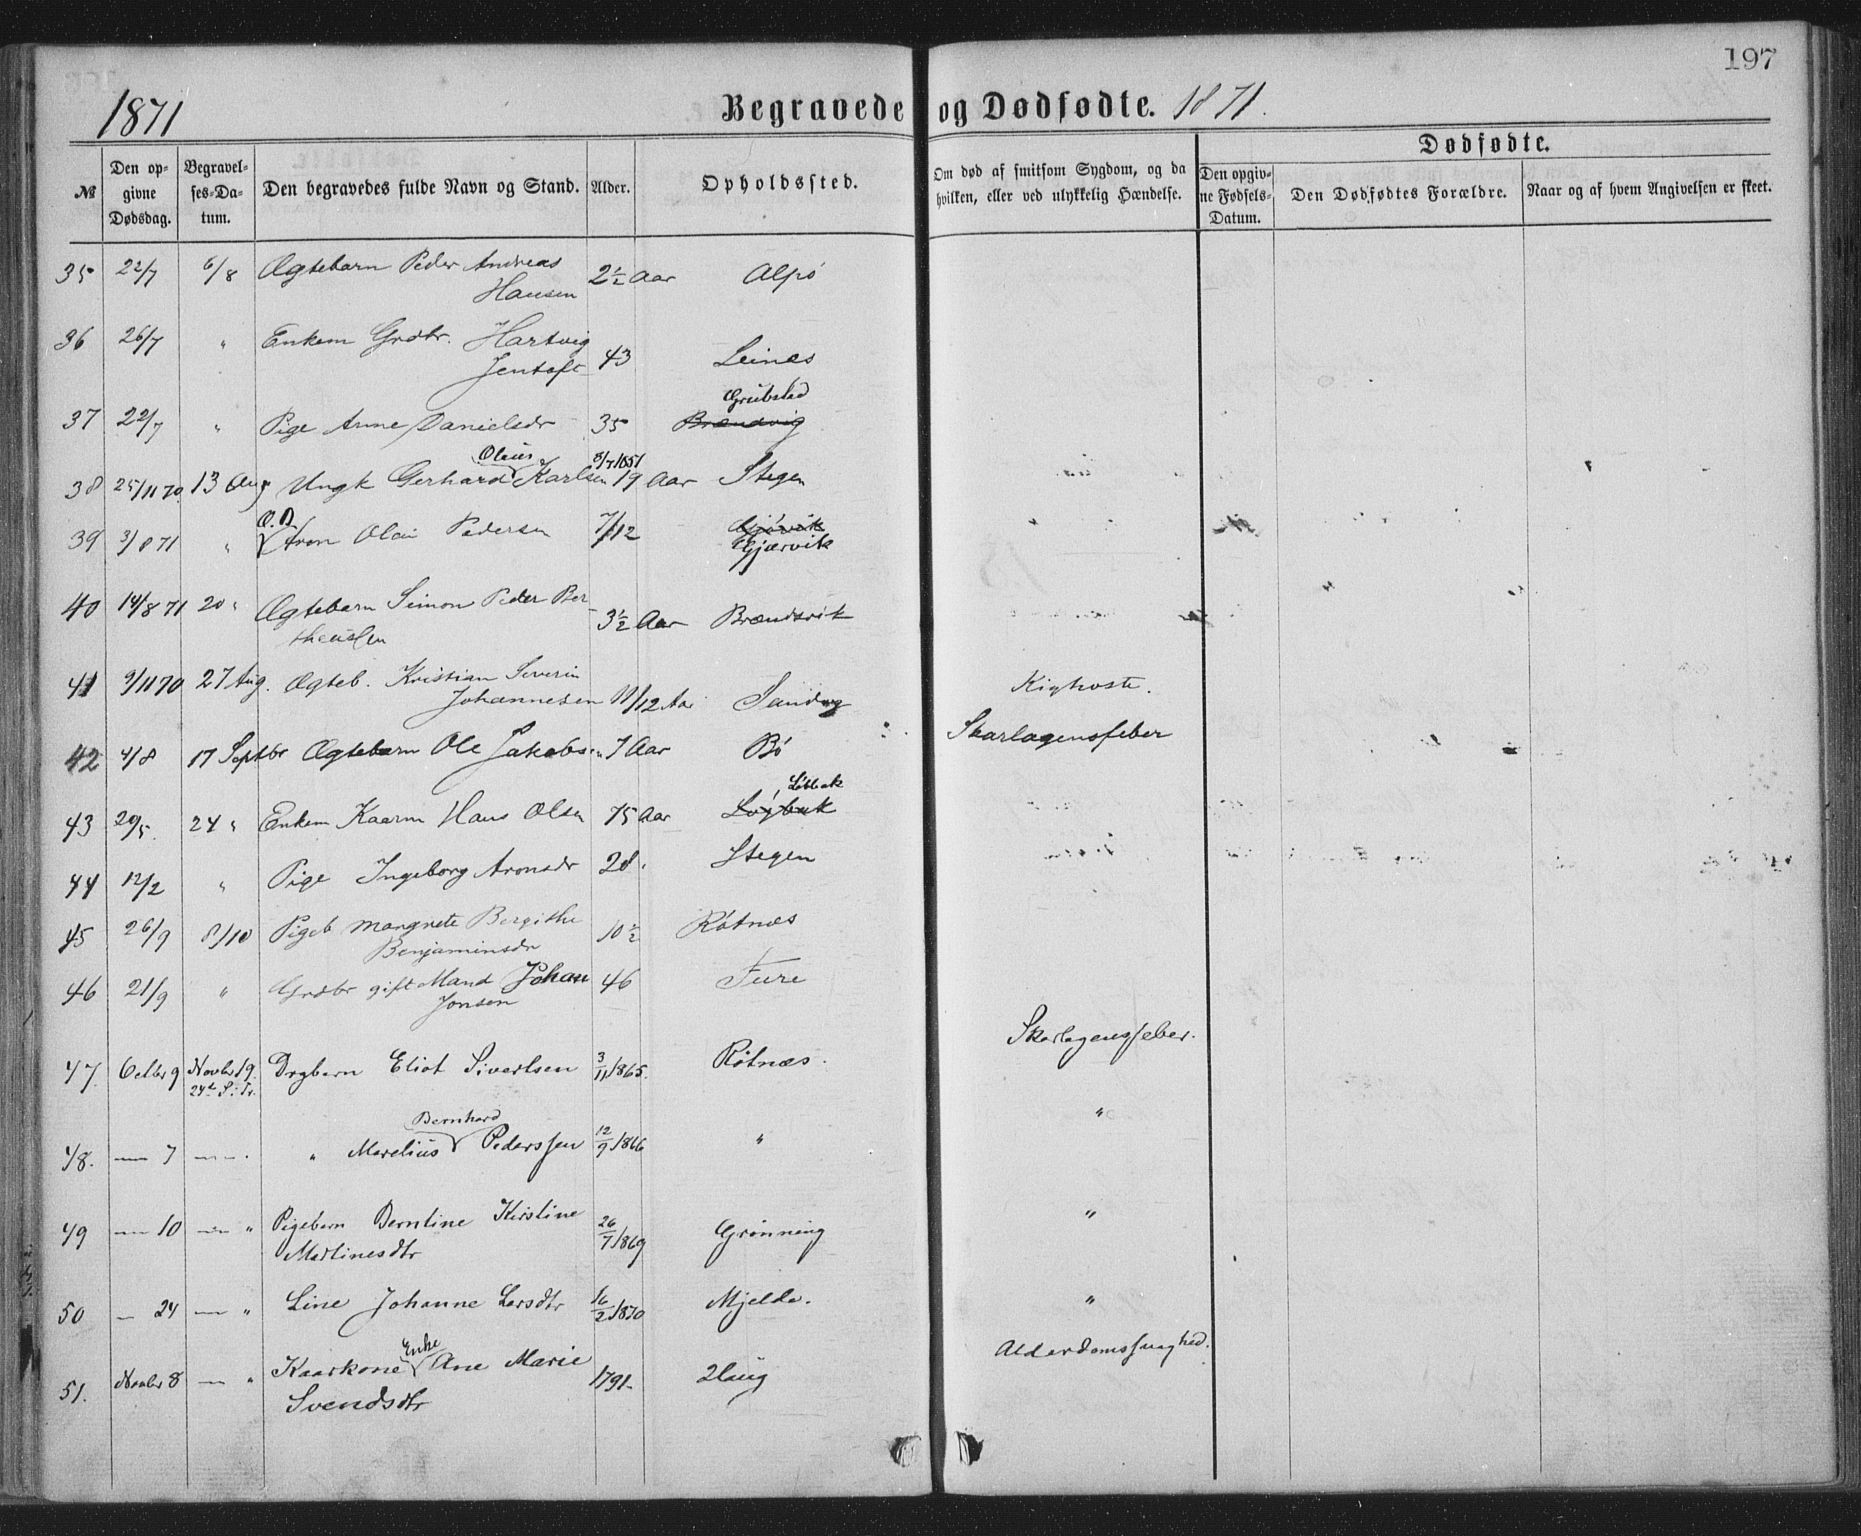 197
1871 Begravede og Dødfødte. 1871.
Dødfødte.
№ Den op- Begravel- Den begravedes fulde Navn og Stand. Alder. Opholdssted. Om død af smitsom Sygdom, og da Den opgiv- Den Dødfødtes Forældre. Naar og af hvem Angivelsen er skeet.
givne ses-Da- hvilken, eller ved ulykkelig Hændelse. ne Fødsels-
Dødsdag. tum. Datum.
35 22/7 6/8 Ægtebarn Peder Andreas 2½ Aar Alpø
Hansen
36 26/7 " Enkem Grdbr. Hartvig 43 Leines
Jentoft
Grubstad
37 22/7 " Pige Anne Danielsdr 35 Brændvig
Olaus 8/7 1851
38 25/11 70 13 Aug Ungk Gerhard Karlsen 19 Aar Stegen
O. D.
39 3/8 71 " Aron Olai Pedersen 7/12 Gjærvik
40 14/8 71 20 " Ægtebarn Simon Peder Ber- 3½ Aar Brændsvik
theussen
41 9/11 70 27 Aug. Ægteb. Kristian Severin Kighoste.
Johannesen 11/12 Aar Sandvg
42 4/8 17 Septbr Ægtebarn Ole Jakobsen 7 Aar Bø Skarlagensfeber
Løbbak
43 20/5 24 " Enkem Kaarm Hans Olsen 75 Aar Løgbak
44 12/2 " Pige Ingeborg Aronsdr 28 " Stegen
45 26/9 8/10 Pigeb Margrete Bergithe 10½ Røtnæs
Benjaminsdr
46 21/9 " Grdbr gift Mand Johan 46 Fure
Jonsen
47. Octbr 9 Novbr 19. Drgbarn Eliot Sivertsen 3/11 1865. Røtnæs. Skarlagensfeber.
24de S. i Tr.
Bernhard
48. — 7 — " Marelius Pederssen 12/9 1866 " "
49 — 10 — " Pigebarn Berntine Kirstine 26/7 1869 Grønning "
Martinesdtr
50 — 24 — " Line Johanne Larsdtr 16/2 1870 Mjelde. "
Enke
51. Novbr 8 — " Kaarkone Ane Marie 1791- Haug Alderdomssvaghed.
Svendsdtr